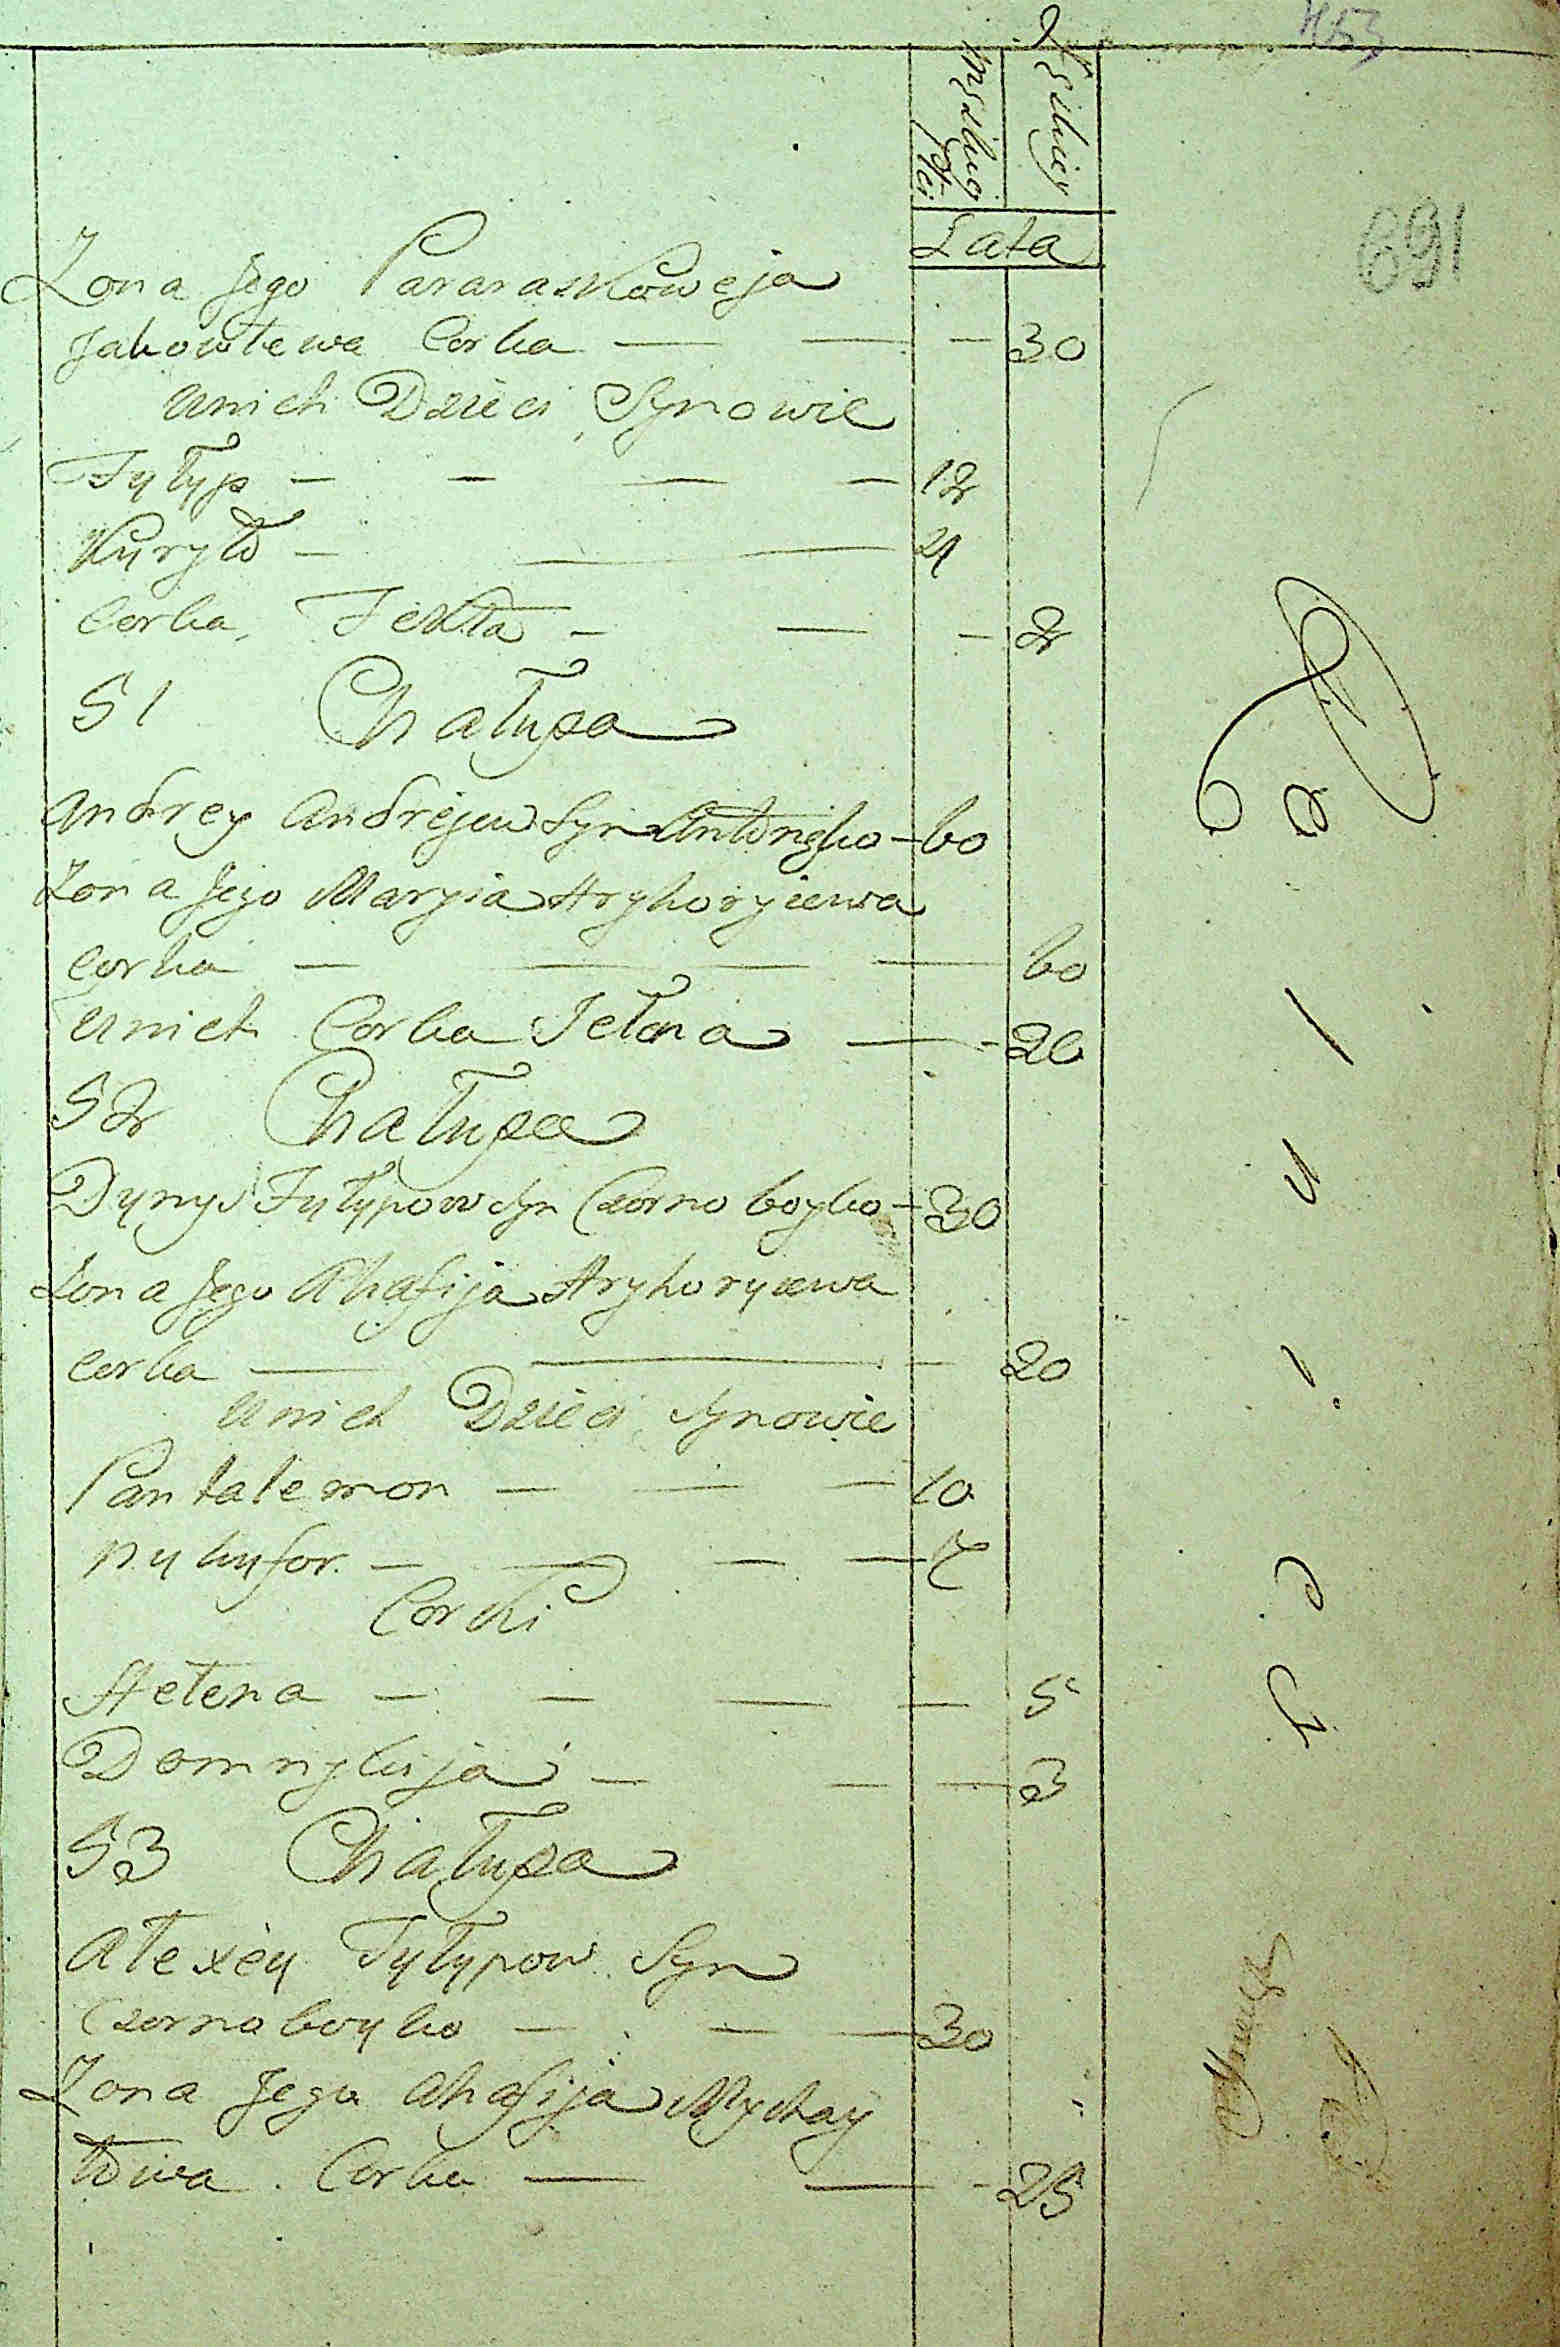 453
Męzkiej płci
Żeńskiey
Lata
169
Zona Jego Pararaskoweja
Jakowłewa Corka — — — 30
Unich Dzieci Synowie
Fyłyp — — — — 12
Kuryło — — 4
Corka, Fekła — — — 2
51 Chałupa
Andrey Andrejew Syn Antonyko — 60
Zona Jego Maryia Hryhoryiewa
Corka — — — — 60
Unich Corka Jełena — - 20
52 Chałupa
Dynys Fyłypow Syn Czornoboyko — 30
Zona Jego Ahafija Hryhoryiewa
Corka — — — 20
Unich Dzieci Synowie
Pantałemon — — — 10
Nykyfor — — — — 7
Corki
Hełena — — — — 5
Domnykija — — — 3
53 Chałupa
Ałexèy Fyłypow Syn
Czornoboyko — — — 30
Zona Jego Ahafija Mychay
łowa Corka — — - 25